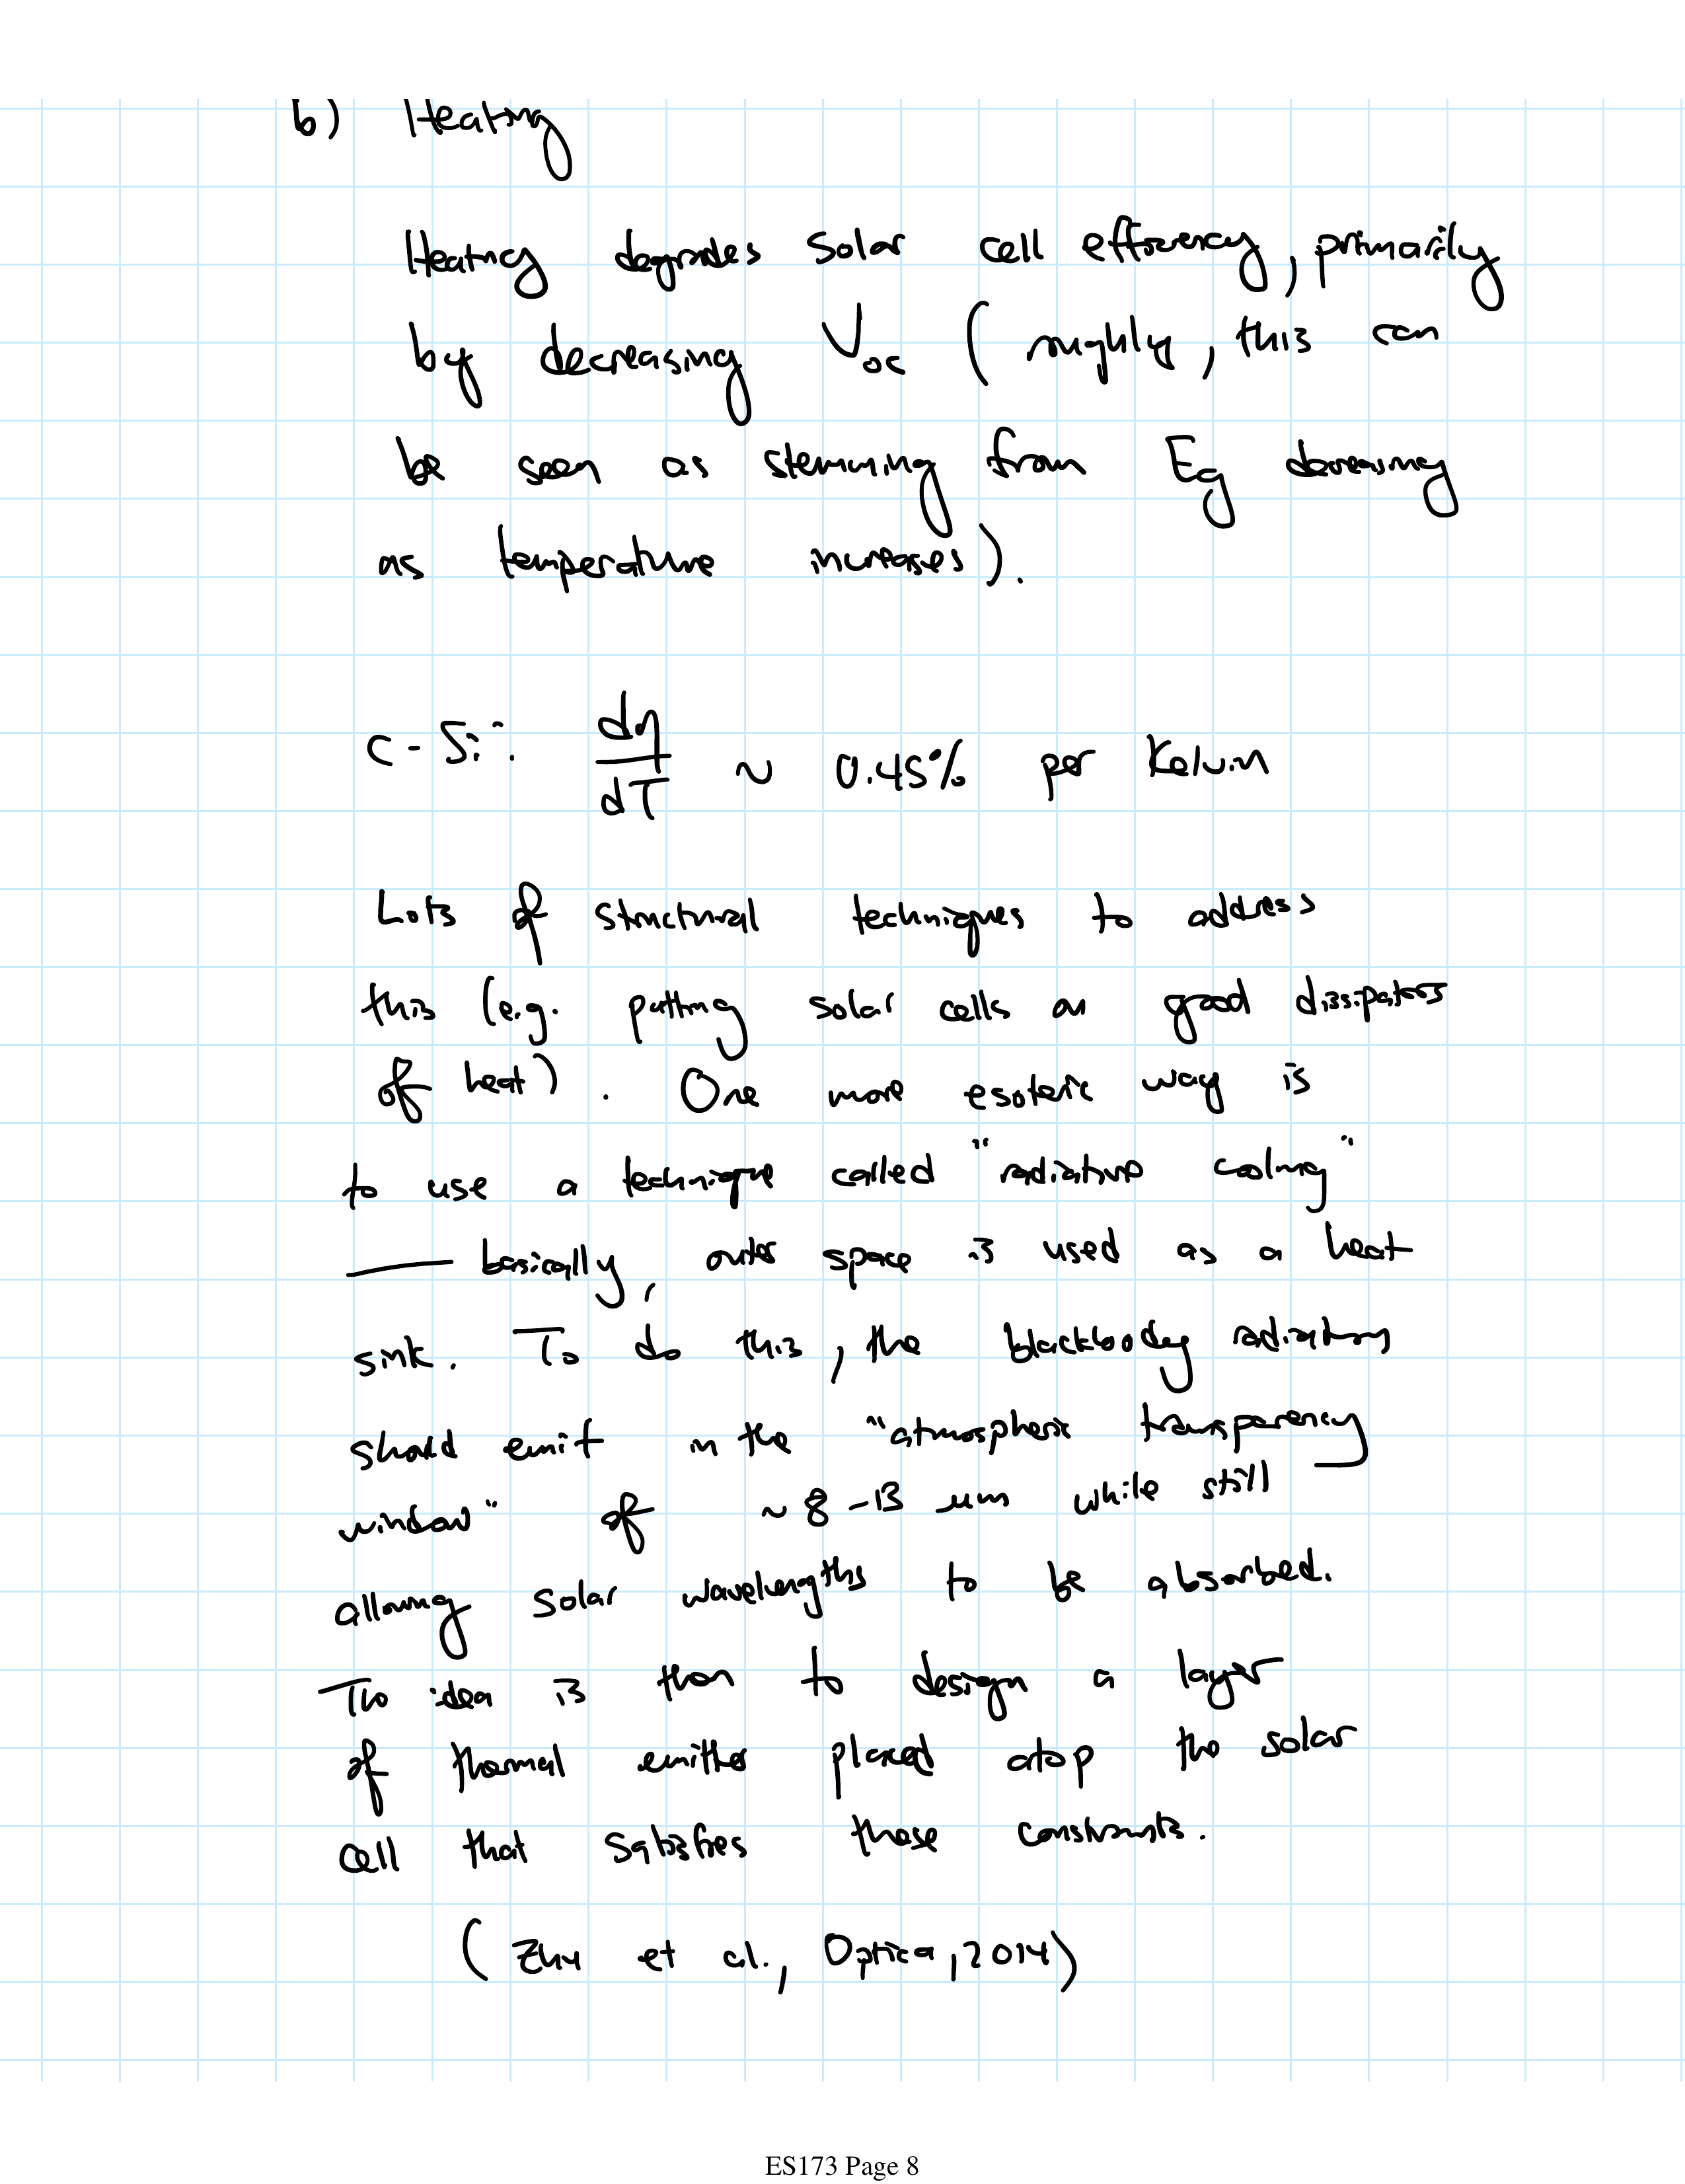 b) Heating
Heating degrades solar cell efficiency, primarily
by decreasing Voc (roughly, this can
be seen as stemming from Eg decreasing
as temperature increases).
c-Si: dη/dT ~ 0.45% per Kelvin
Lots of structural techniques to address
this (e.g. putting solar cells on good dissipators
of heat). One more esoteric way is
to use a technique called "radiative cooling"
— basically, outer space is used as a heat
sink. To do this, the blackbody radiation
should emit in the "atmospheric transparency
window" of ~8-13 um while still
allowing solar wavelengths to be absorbed.
The idea is then to design a layer
of thermal emitter placed atop the solar
cell that satisfies these constraints.
(Zhu et al., Optica, 2014)
ES173 Page 8